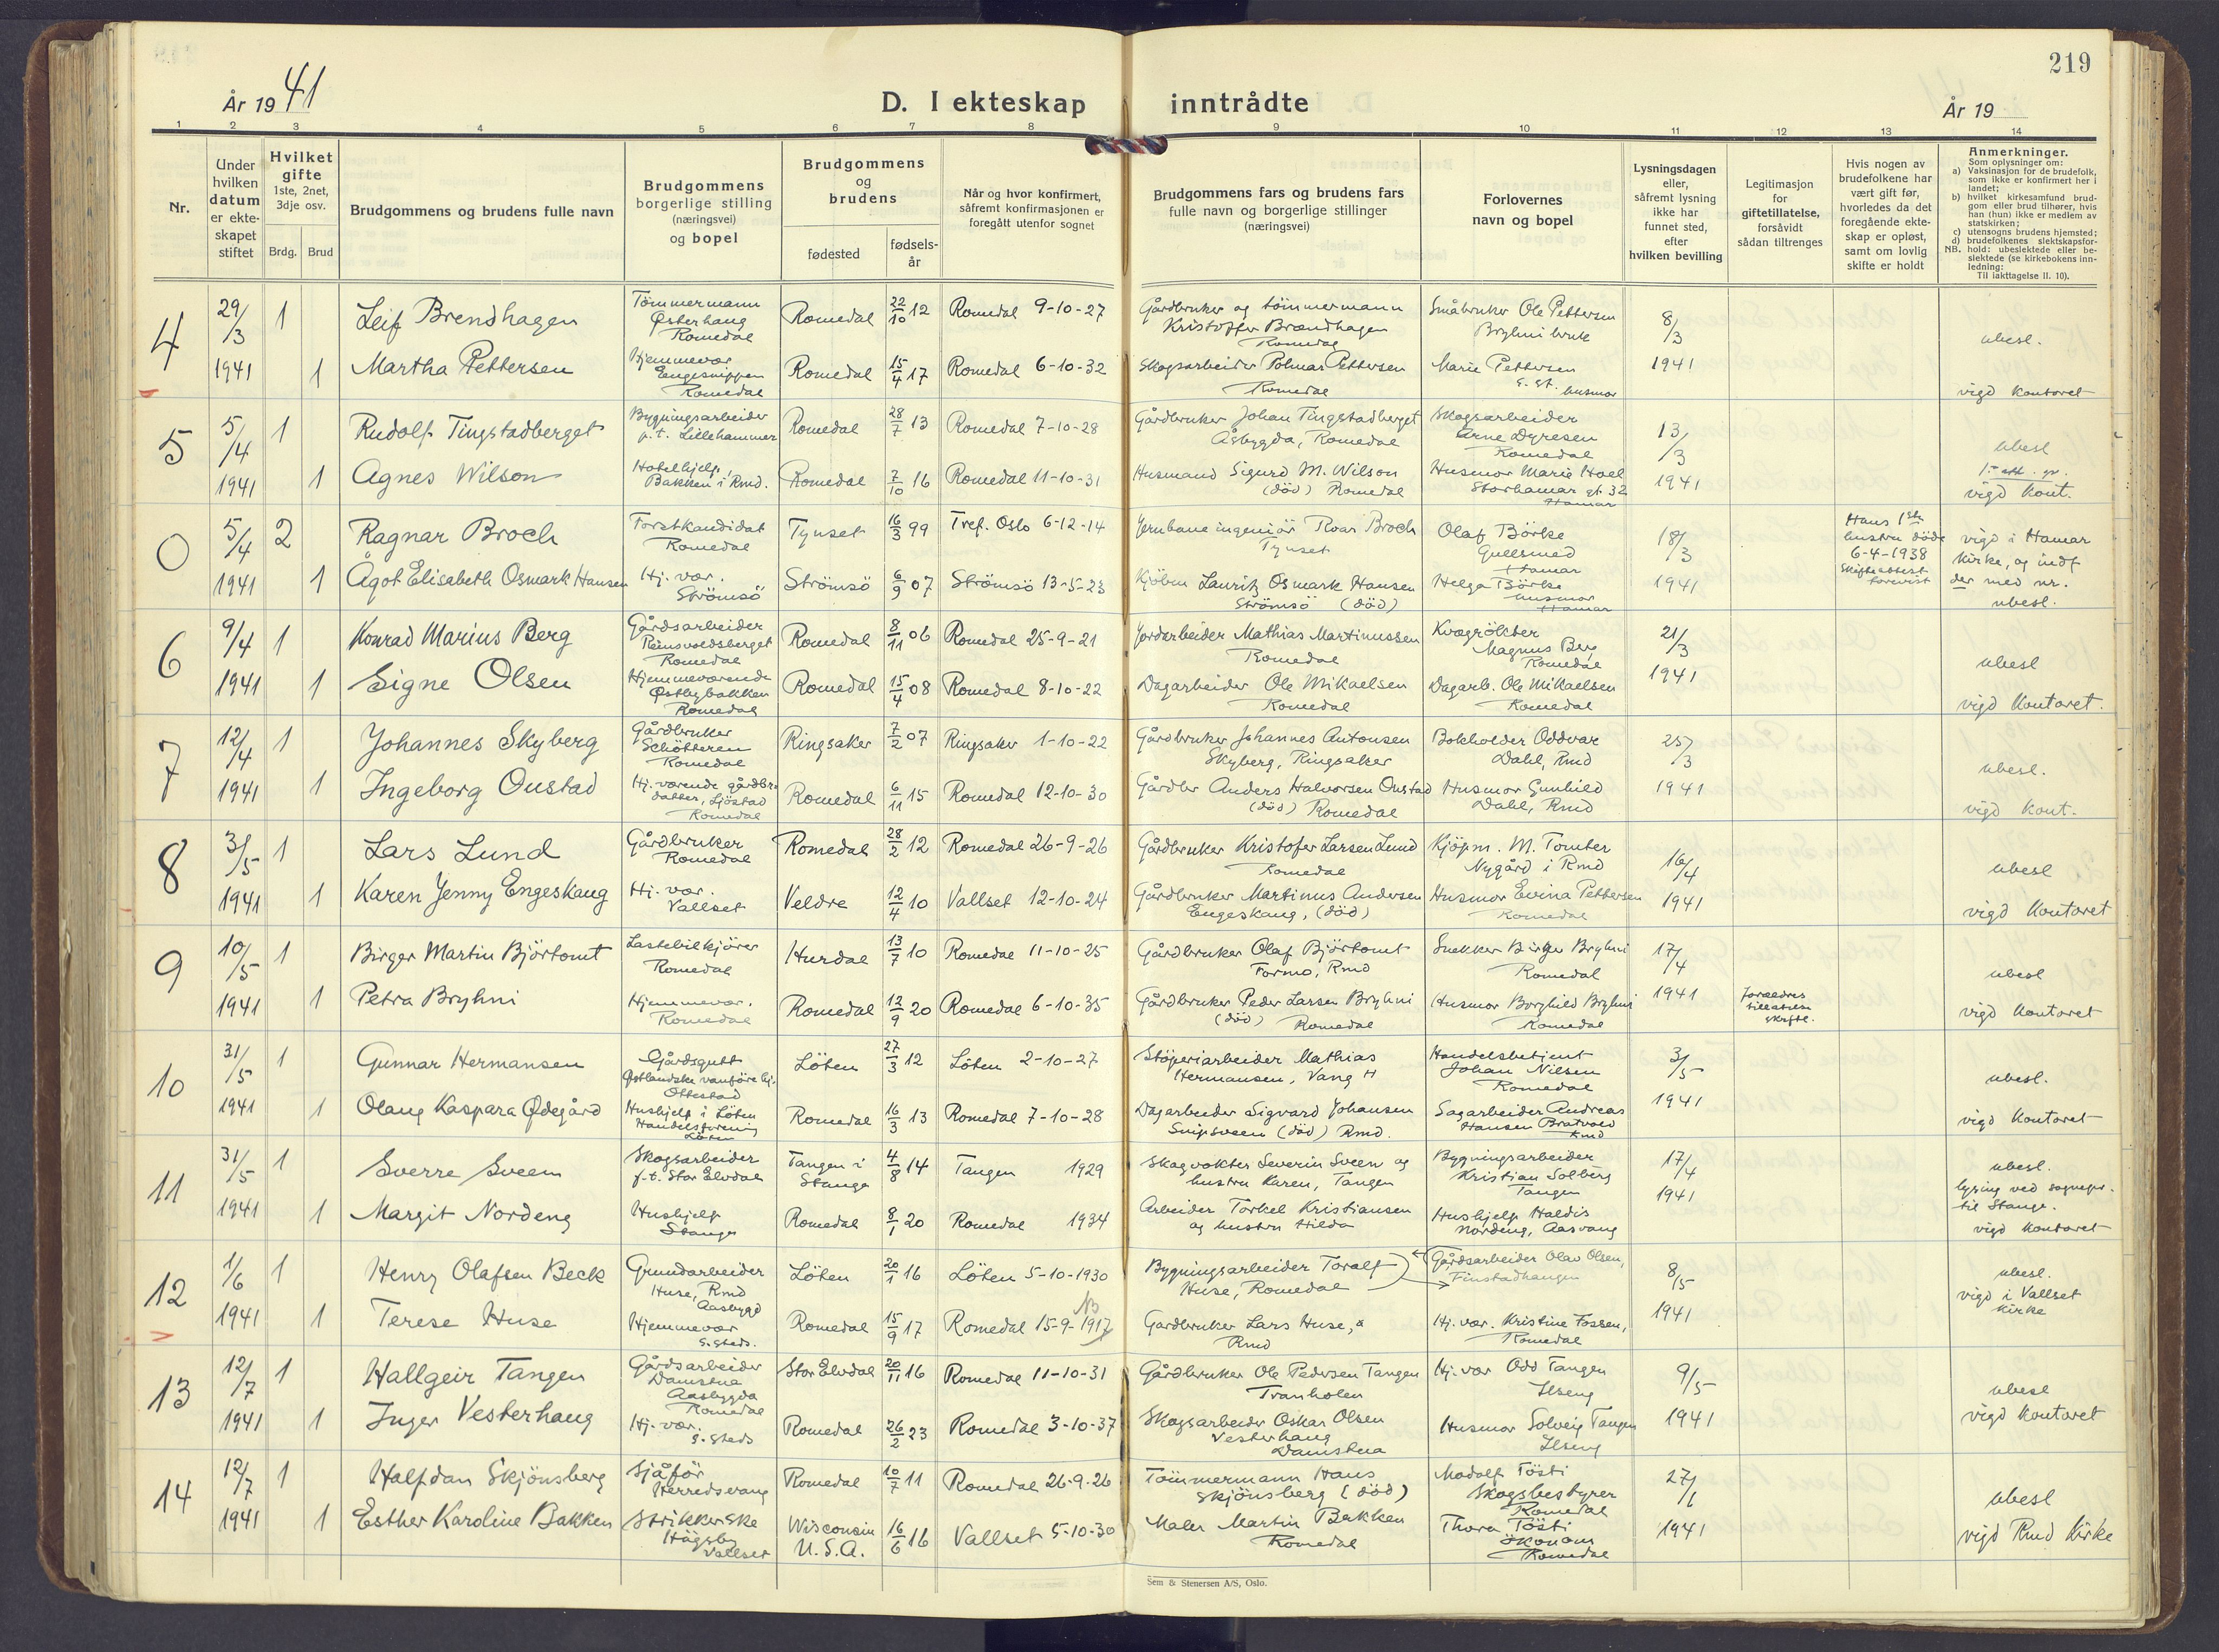 219
År 19 41
D. I ekteskap inntrådte
År 19
1 2 3 4 5 6 7 8 9 10 11 12 13 14
Nr.
Under hvilken datum er ekte-skapet stiftet
Hvilket gifte 1ste, 2net, 3dje osv.
Brdg. Brud
Brudgommens og brudens fulle navn
Brudgommens borgerlige stilling (næringsvei) og bopel
Brudgommens og brudens
fødested
fødsels-år
Når og hvor konfirmert, såfremt konfirmasjonen er foregått utenfor sognet
Brudgommens fars og brudens fars fulle navn og borgerlige stillinger (næringsvei)
Forlovernes navn og bopel
Lysningsdagen eller, såfremt lysning ikke har funnet sted, efter hvilken bevilling
Legitimasjon for giftetillatelse, forsåvidt sådan tiltrenges
Hvis nogen av brudefolkene har vært gift før, hvorledes da det foregående ekte-skap er opløst, samt om lovlig skifte er holdt
Anmerkninger.
Som oplysninger om:
a) Vaksinasjon for de brudefolk, som ikke er konfirmert her i landet;
b) hvilket kirkesamfund brud-gom eller brud tilhører, hvis han (hun) ikke er medlem av statskirken;
c) utensogns brudens hjemsted;
d) brudefolkenes slektskapsfor-hold: ubeslektede eller be-slektede (se kirkebokens inn-ledning:
NB.
Til iakttagelse II. 10).
4 29/3 1 Leif Brendhagen Tömmermann Østerhaug Romedal Romedal 22/10 12 Romedal 9-10-27 Gårdbruker og tömmermann Kristoffer Brændhagen Romedal Småbruker Ole Pettersen Bryhni bruk 8/3 ubesl.
1941 1 Martha Pettersen Hjemmevær Engesnippen Romedal Romedal 15/4 17 Romedal 6-10-32 Skogsarbeider Polmar Pettersen Romedal Marie Pettersen s. st. husmor 1941 vigd kontoret
5 5/4 1 Rudolf Tingstadberget Bygningsarbeider p.t. Lillehammer Romedal 28/7 13 Romedal 7-10-28 Gårdbruker Johan Tingstadberget Åsbygda, Romedal Skogsarbeider Arne Dyresen Romedal 13/3 ubesl
1941 1 Agnes Wilson Hotelhjelp, Bakken i Rmd. Romedal 7/10 16 Romedal 11-10-31 Husmand Sigurd M. Wilson (död) Romedal Husmor Marie Hoel Storhamar gt 32 Hamar 1941 vigd kont.
0 5/4 2 Ragnar Broch Forstkandidat Romedal Tynset 16/3 99 Tref. Oslo 6-12-14 Jernbane ingeniör Roar Broch Tynset Olaf Börke Gullsmed Hamar 18/3 Hans 1ste hustru döde 6-4-1938 Skifteattest forevist vigd i Hamar kirke, og indf
1941 1 Ågot Elisabeth Osmark Hansen Hj. vær. Strömsö Strömsö 6/9 07 Strömsö 13-5-23 Kjöbm Lauritz Osmark Hansen Strömsö (död) Helga Börke husmor Hamar 1941 der med nr. ubesl.
6 9/4 1 Konrad Marius Berg Gårdsarbeider Reinsvoldsberget Romedal Romedal 8/11 06 Romedal 25-9-21 Jordarbeider Mathias Martinussen Romedal Kvægrökter Magnus Berg Romedal 21/3 ubesl
1941 1 Signe Olsen Hjemmeværende Østbybakken Romedal Romedal 15/4 08 Romedal 8-10-22 Dagarbeider Ole Mikaelsen Romedal Dagarb. Ole Mikaelsen Romedal 1941 vigd kontoret.
7 12/4 1 Johannes Skyberg Gårdbruker Schötteren Romedal Ringsaker 7/2 07 Ringsaker 1-10-22 Gårdbruker Johannes Antonsen Skyberg, Ringsaker Bokholder Oddvar Dahl, Rmd 25/3 ubesl.
1941 1 Ingeborg Oustad Hj. værende gårdbr. datter, Sjöstad Romedal Romedal 6/11 15 Romedal 12-10-30 Gårdbr Anders Halvorsen Oustad (död) Romedal Husmor Gunhild Dahl, Rmd 1941 vigd kont.
8 3/5 1 Lars Lund Gårdbruker Romedal Romedal 28/2 12 Romedal 26-9-26 Gårdbruker Kristofer Larsen Lund Romedal Kjöpm. M. Tomter Nygård i Rmd 16/4 ubesl
1941 1 Karen Jenny Engeskaug Hj. vær. Vallset Veldre 12/4 10 Vallset 12-10-24 Gårdbruker Martinus Andersen Engeskaug, (död) Husmor Evina Pettersen Romedal 1941 vigd kontoret
9 10/5 1 Birger Martin Björtomt Lastebilkjörer Romedal Hurdal 13/7 10 Romedal 11-10-25 Gårdbruker Olaf Björtomt Formo, Rmd Snekker Birger Bryhni Romedal 17/4 ubesl
1941 1 Petra Bryhni Hjemmevær. Romedal Romedal 12/9 20 Romedal 6-10-35 Gårdbruker Peder Larsen Bryhni (död) Romedal Husmor Borghild Bryhni Romedal 1941 Forældres tillatelse skriftl. vigd kontoret
10 31/5 1 Gunnar Hermansen Gårdsgutt Østlandske vanförehj. Ottestad Löten 27/3 12 Löten 2-10-27 Stöperiarbeider Mathias Hermansen, Vang H Handelsbetjent Johan Nilsen Romedal 3/5 ubesl.
1941 1 Olaug Kaspara Ødegård Hushjelp i Löten Handelsforening Löten Romedal 16/3 13 Romedal 7-10-28 Dagarbeider Sigvard Johansen Snipsveen (död) Rmd. Sagarbeider Andreas Hansen Bratvold Rmd 1941 vigd kontoret
11 31/5 1 Sverre Sveen Skogsarbeider p.t. Stor Elvdal Tangen i Stange 4/8 14 Tangen 1929 Skogvokter Severin Sveen og hustru Karen, Tangen Bygningsarbeider Kristian Solberg Tangen 17/4 ubesl. lysing ved sognepr. til Stange.
1941 1 Margit Nordeng Hushjelp Stange Romedal 8/1 20 Romedal 1934 Arbeider Torkel Kristiansen og hustru Hilda Hushjelp Haldis Nordeng, Aasvang 1941 vigd kontoret
12 1/6 1 Henry Olafsen Beck Grundarbeider Huse, Rmd Aasbygd Löten 20/1 16 Löten 5-10-1930 Bygningsarbeider Toralf Huse, Romedal Gårdsarbeider Olav Olsen, Finstadhaugen 8/5 ubesl. vigd i Vallset kirke
1941 1 Terese Huse Hjemmevær s. steds. Romedal 15/9 17 Romedal 15-9-1917 NB Gardbruker Lars Huse, Rmd Hj. vær. Kristine Fossen, Romedal 1941
13 12/7 1 Hallgeir Tangen Gårdsarbeider Damstua Aasbygda Romedal Stor Elvdal 20/11 16 Romedal 11-10-31 Gårdbruker Ole Pedersen Tangen Tranholen Hj. vær Odd Tangen Ilseng 9/5 ubesl
1941 1 Inger Vesterhaug Hj. vær. s. steds Romedal 26/2 23 Romedal 3-10-37 Skogsarbeider Oskar Olsen Vesterhaug Damstua Husmor Solveig Tangen Ilseng 1941 vigd kontoret
14 12/7 1 Halfdan Skjönsberg Sjåför Herredsvang Romedal 10/7 11 Romedal 26-9-26 Tömmermann Hans Skjönsberg (död) Modolf Tösti Skogsbestyrer Romedal 27/6 ubesl
1941 1 Esther Karoline Bakken Strikkerske Högsby Vallset Wisconsin U.S.A. 16/6 16 Vallset 5-10-30 Maler Martin Bakken Romedal Thora Tösti Ökonom Romedal 1941 vigd Rmd Kirke
Sem & Stenersen A/S, Oslo.